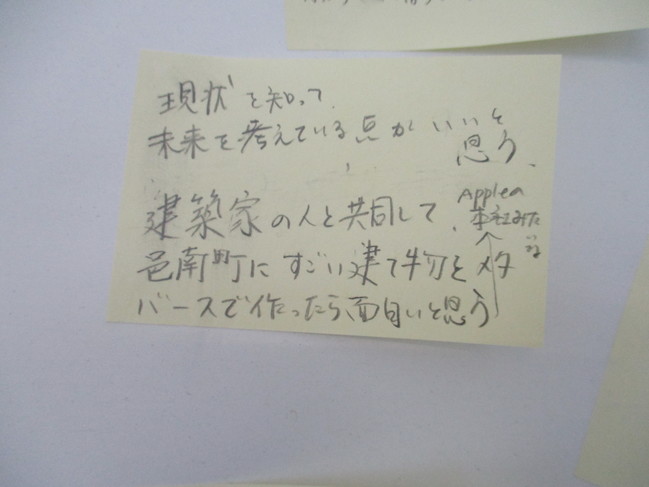 現状を知って
未来を考えている点がいいと
思う、
建築家の人と共同して、
Appleの
本社みた
いな
邑南町にすごい建て物をメタ
バースで作ったら面白いと思う